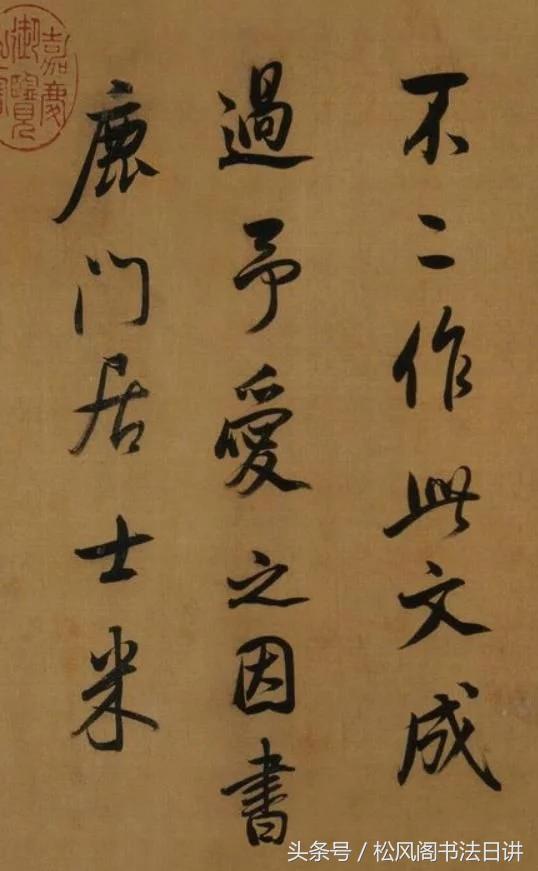 不二作此文成
過予愛之因書
鹿门居士米
嘉慶
御覽
头条号 / 松风阁书法日讲